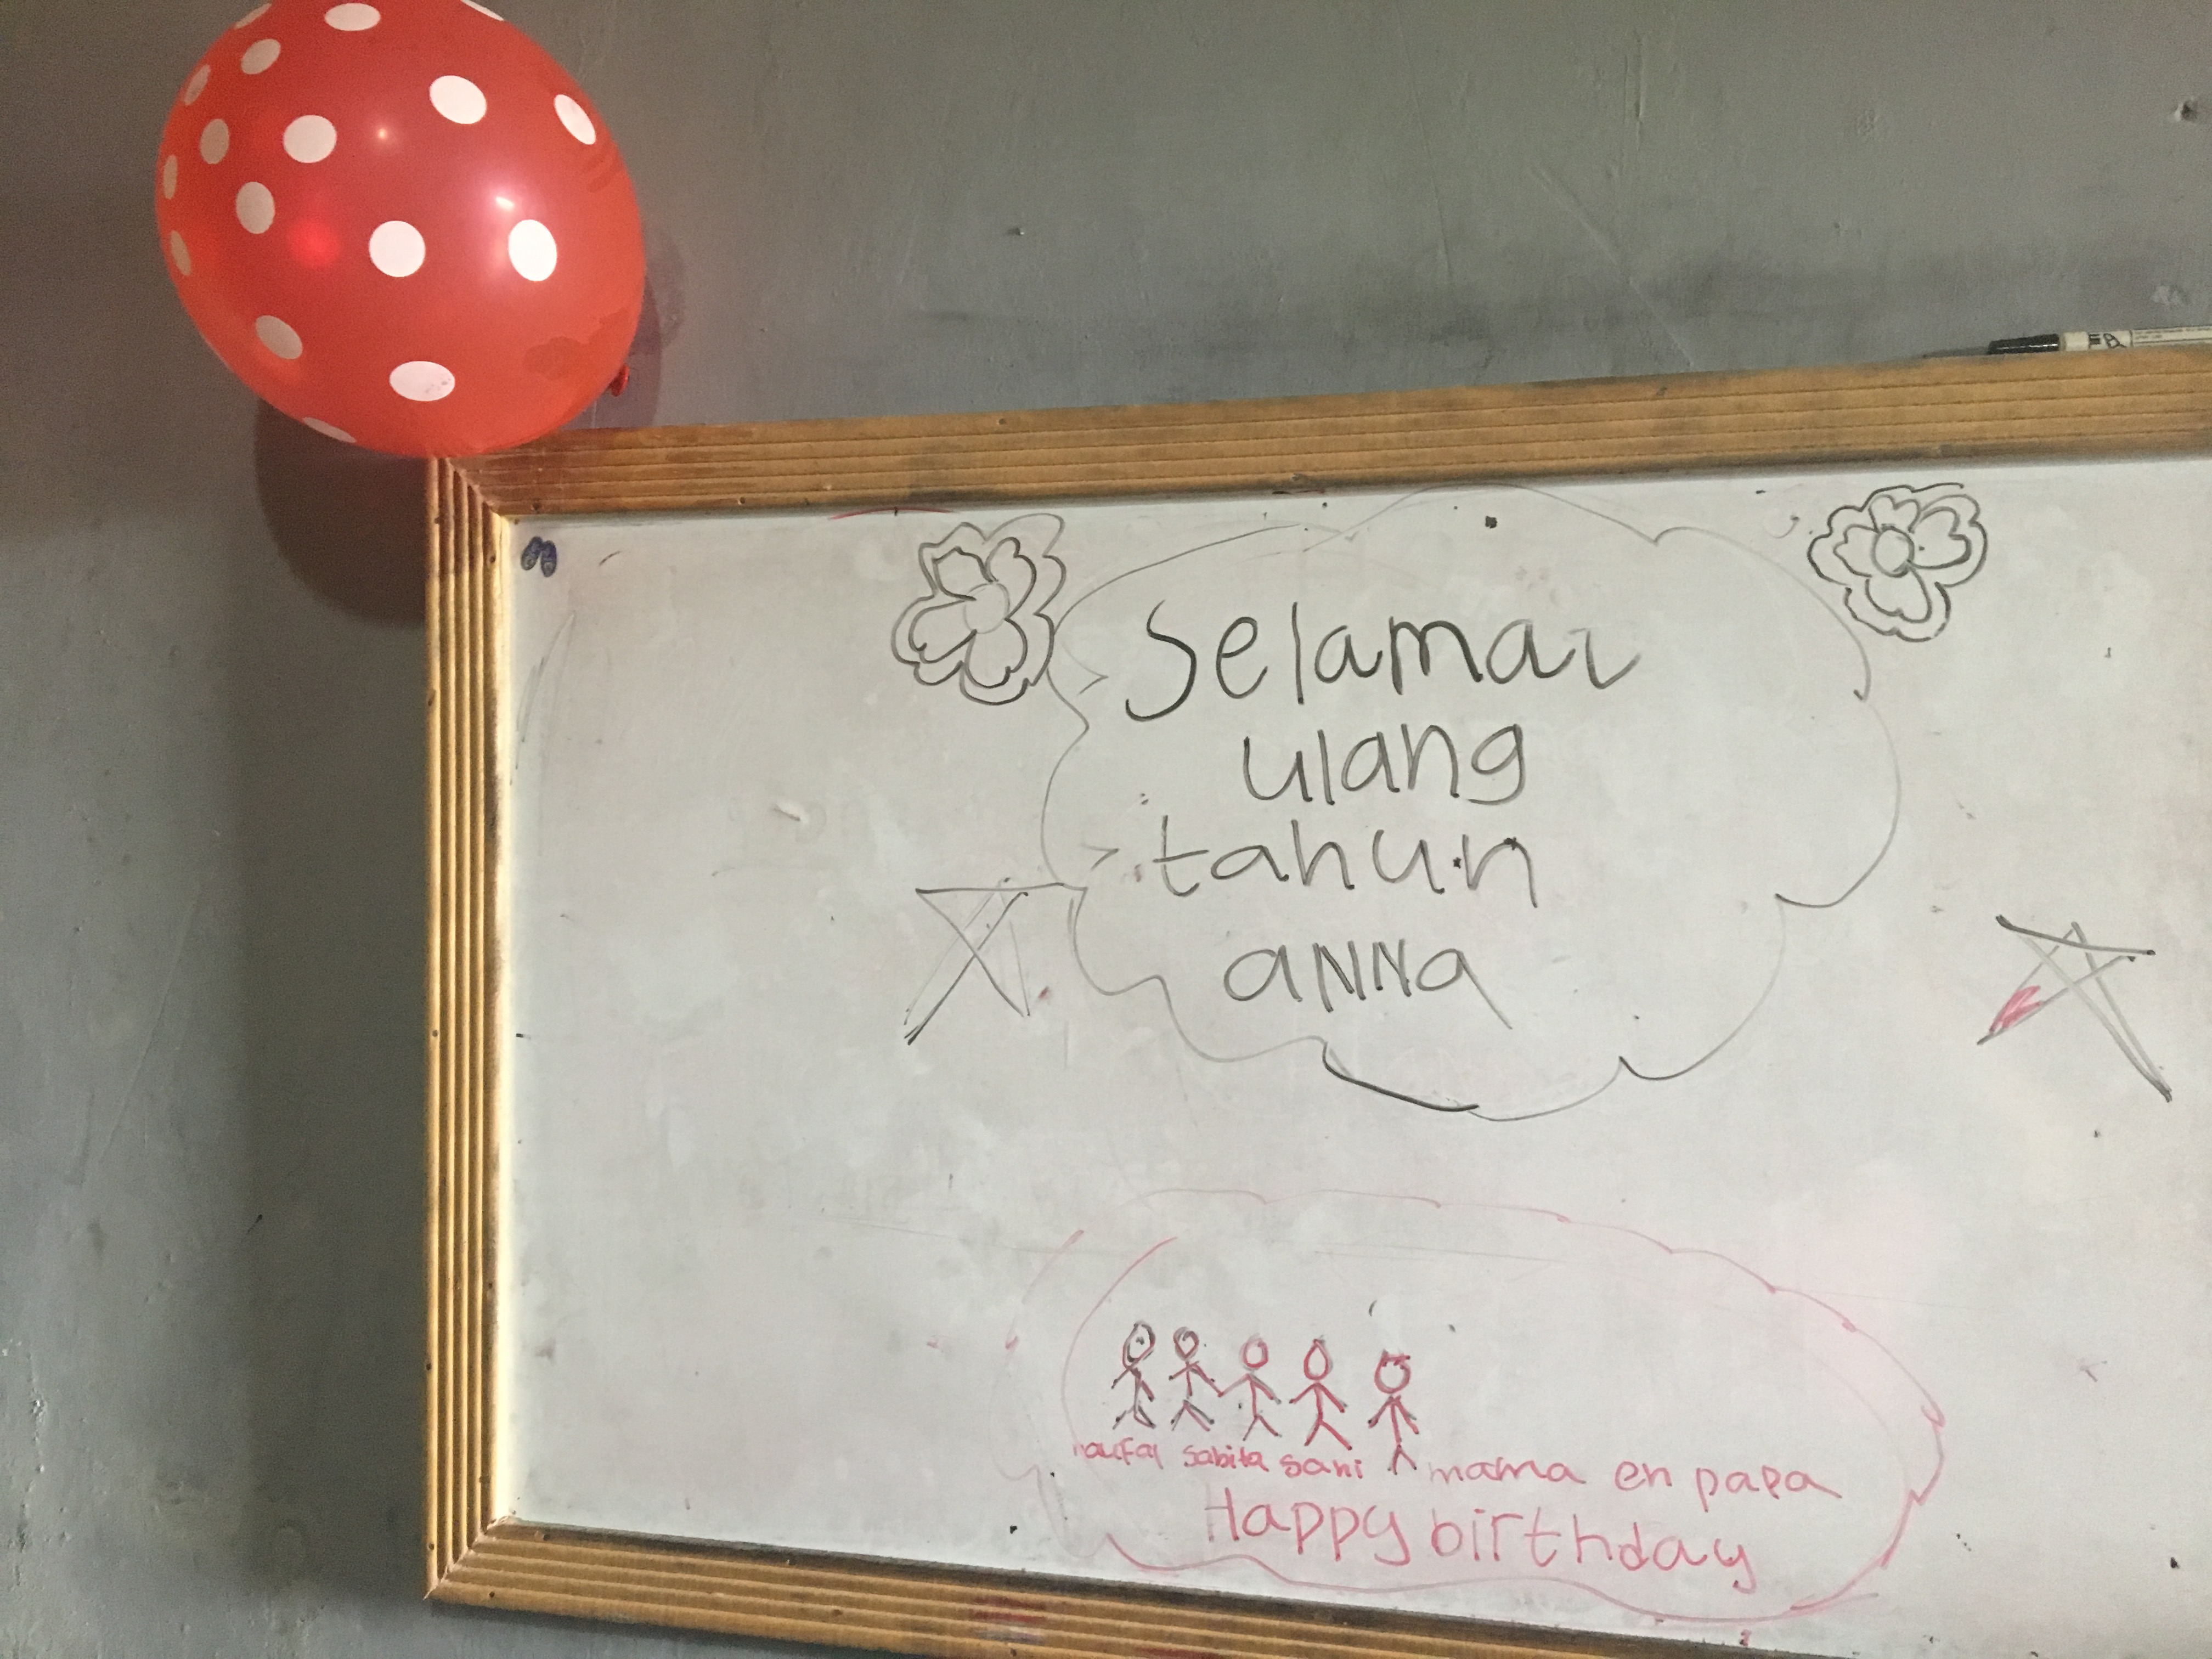 Selamat
ulang
tahun
anna
naufal sabila sani mama en papa
Happy birthday